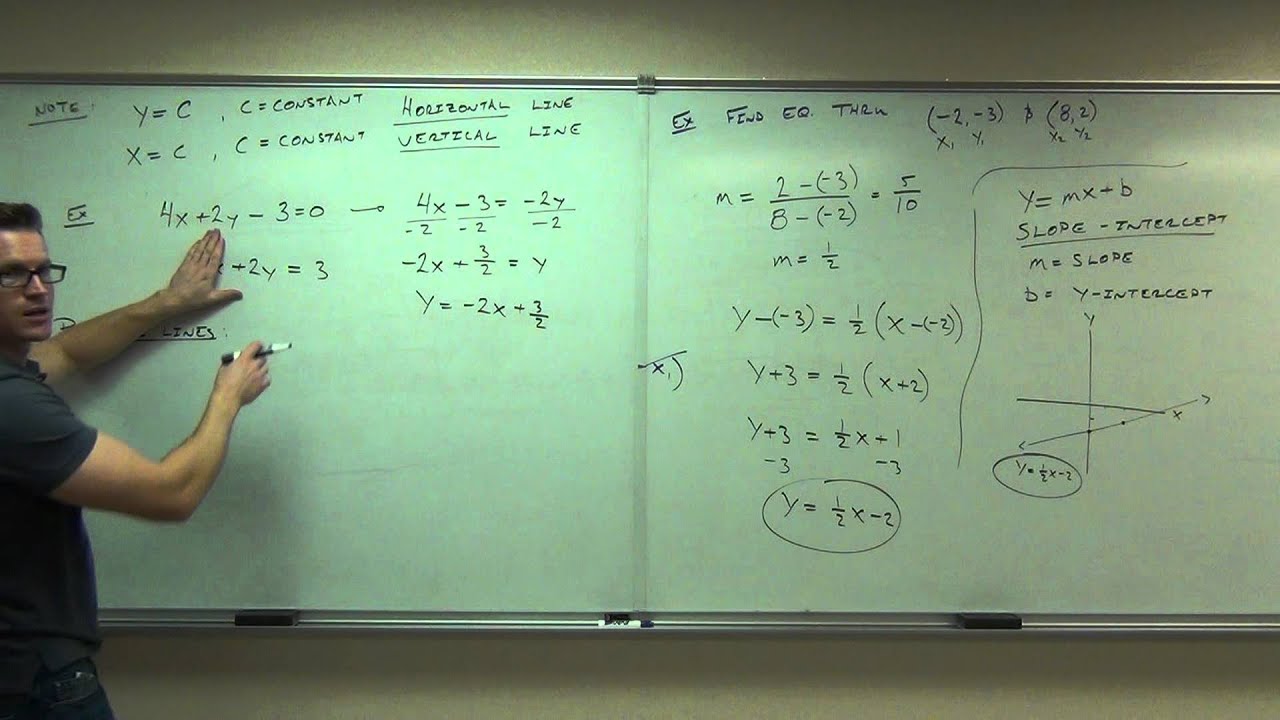 NOTE: Y = C , C = CONSTANT HORIZONTAL LINE
X = C , C = CONSTANT VERTICAL LINE
Ex 4x + 2y - 3 = 0 → 4x - 3 = -2y
-2 -2 -2
+ 2y = 3
-2x + 3/2 = y
Y = -2x + 3/2
LINES:
Ex FIND EQ. THRU (-2, -3) & (8, 2)
X₁ Y₁ X₂ Y₂
m = 2 - (-3) / 8 - (-2) = 5/10
m = 1/2
Y - (-3) = 1/2 (X - (-2))
- X₁)
Y + 3 = 1/2 (X + 2)
Y + 3 = 1/2 X + 1
-3 -3
Y = 1/2 X - 2
Y = mx + b
SLOPE - INTERCEPT
m = SLOPE
b = Y-INTERCEPT
Y
X
Y = 1/2 X - 2